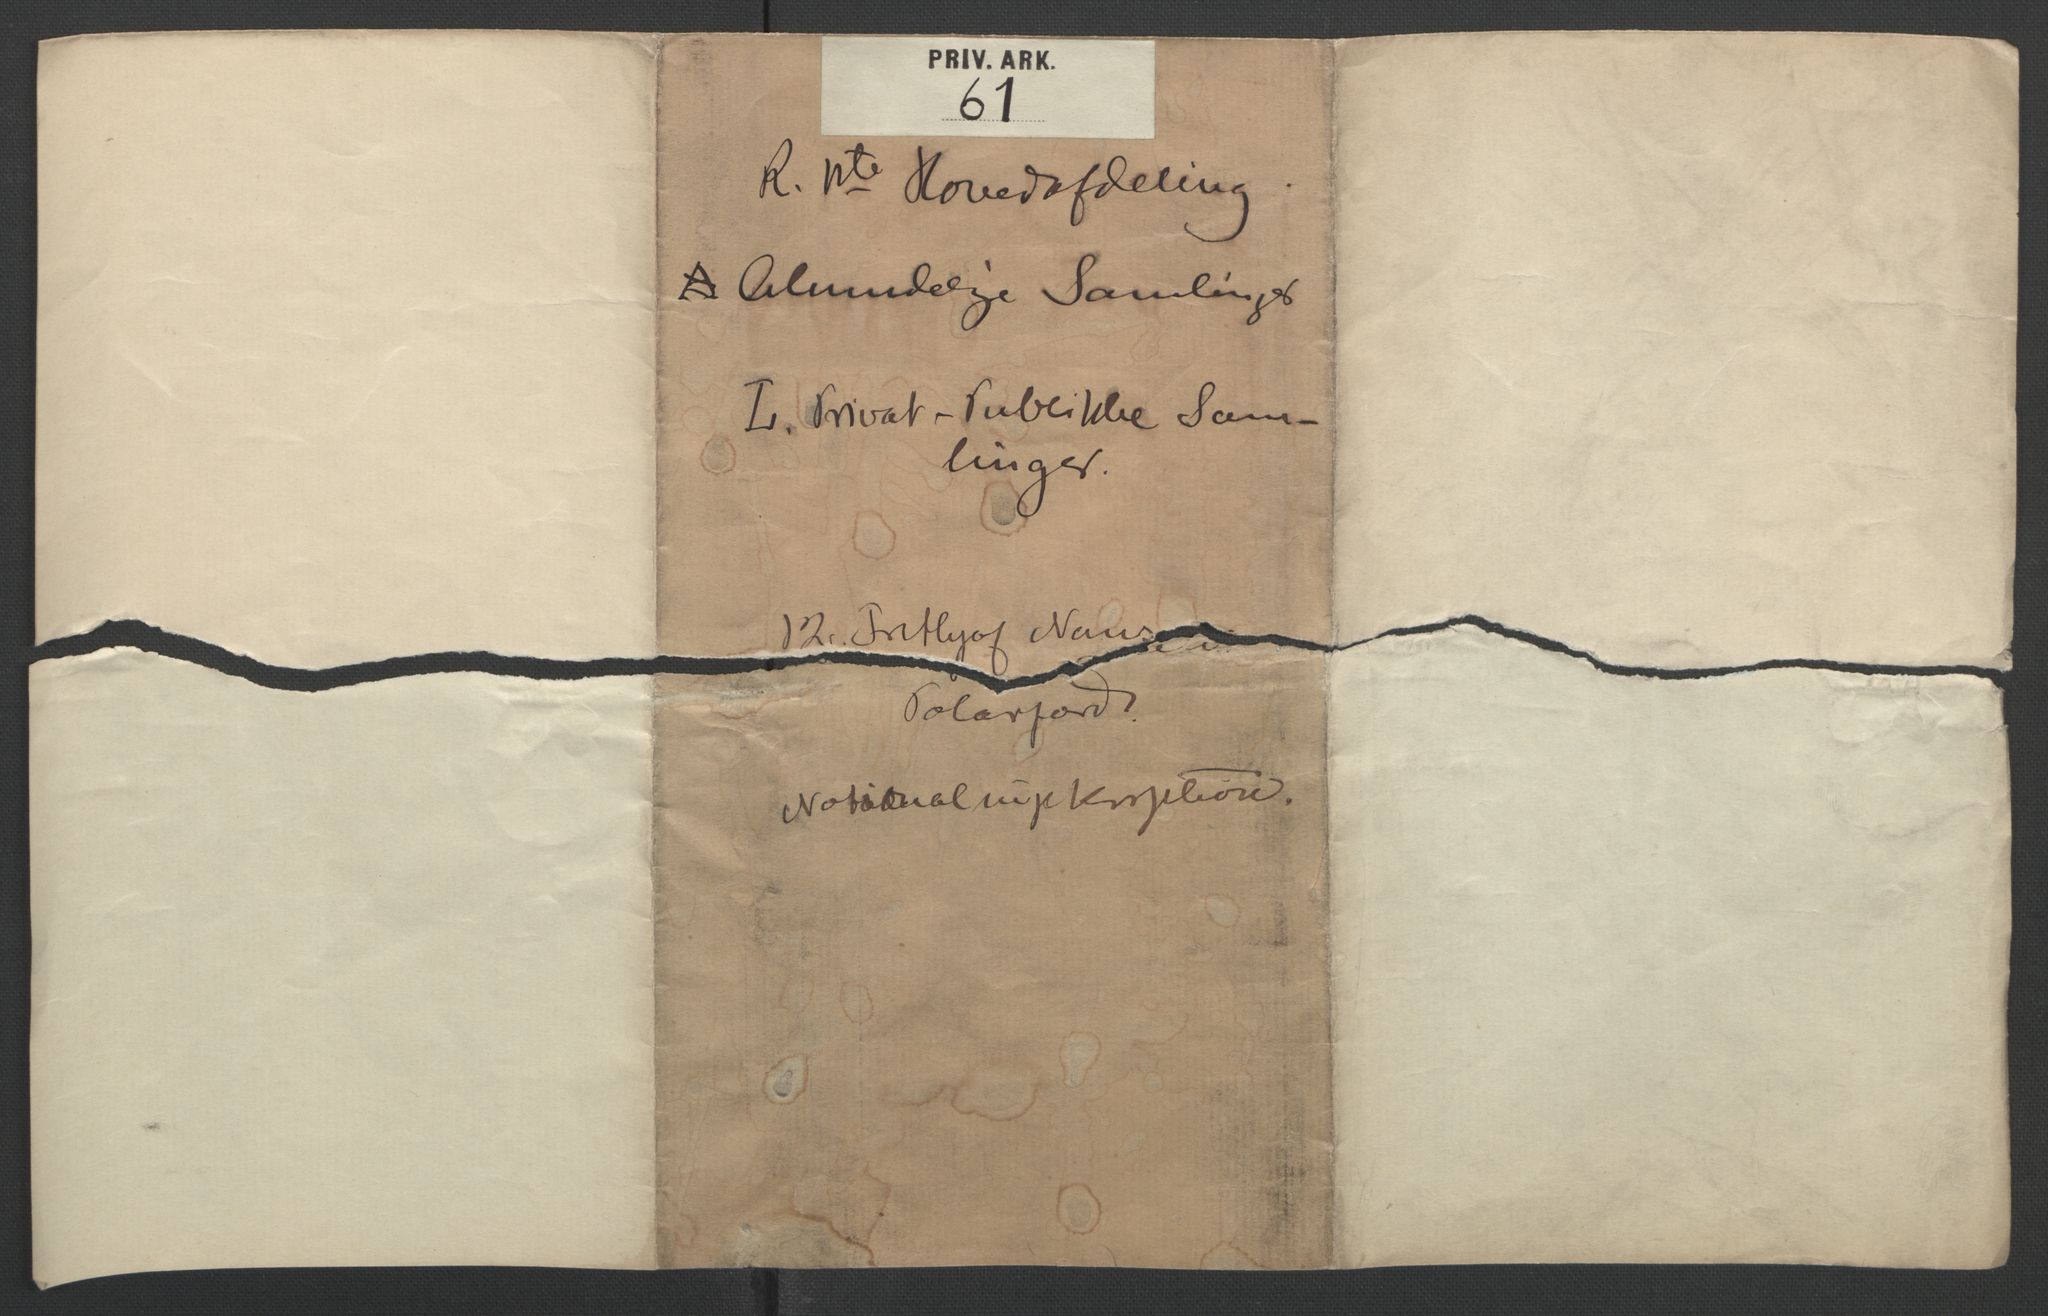 PRIV. ARK.
61
R. IIte Hovedafdeling.
A Almindelige Samlinger
I. Privat-Publikke Sam-
linger.
12. Frithjof Nansen
Polarfærd.
Nationalsupskription.